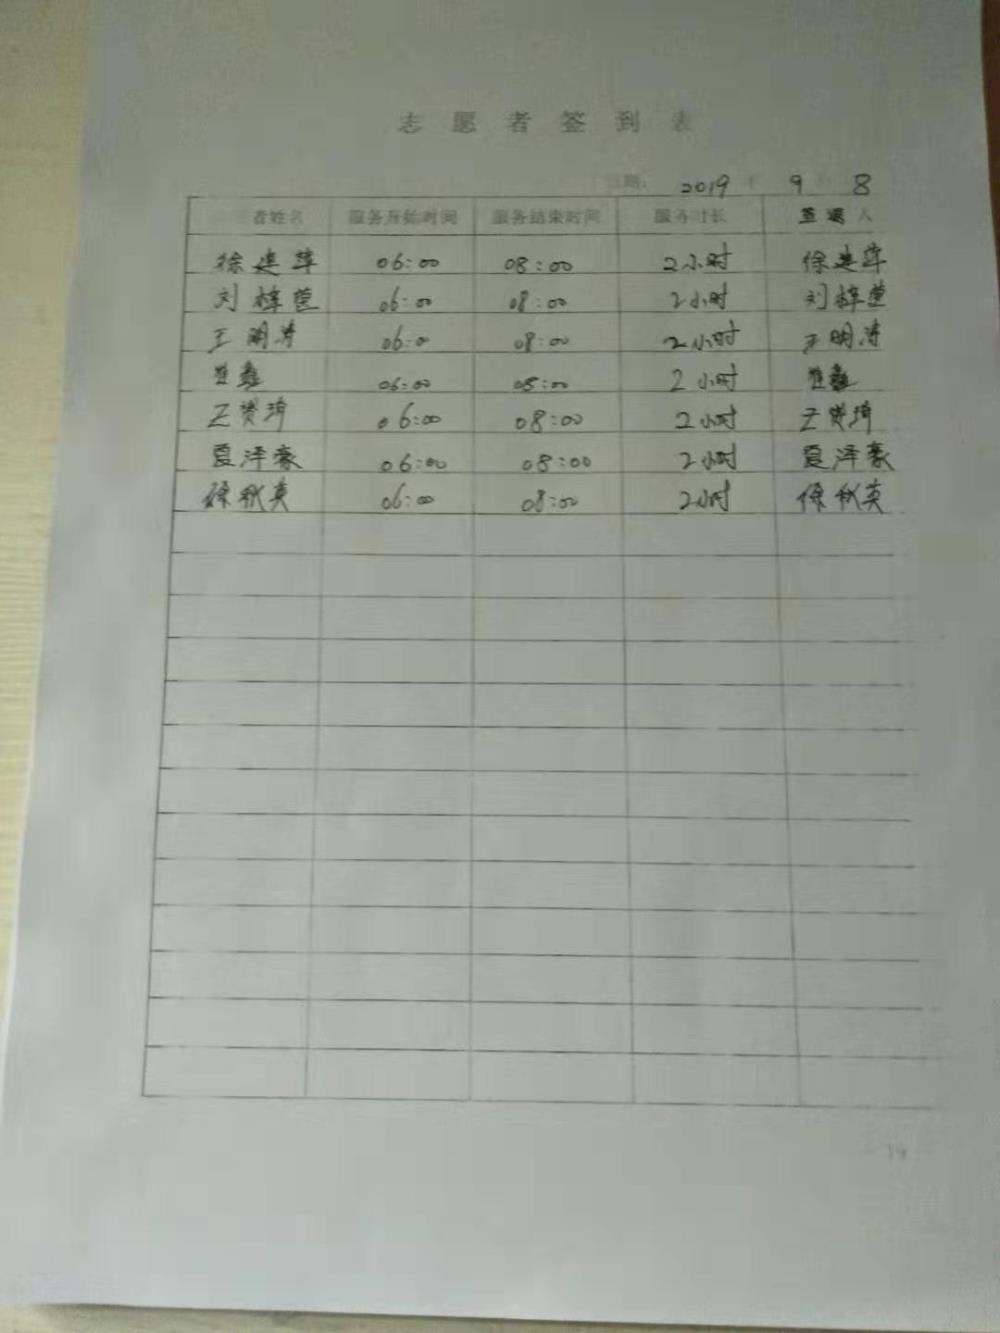 志愿者签到表
日期： 2019 年 9 月 8
者姓名 服务开始时间 服务结束时间 服务时长 人
徐建萍 06:00 08:00 2小时 徐建萍
刘梓萱 06:00 08:00 2小时 刘梓萱
王明涛 06:00 08:00 2小时 王明涛
06:00 08:00 2小时
王赟琦 06:00 08:00 2小时 王赟琦
夏泽豪 06:00 08:00 2小时 夏泽豪
徐秋英 06:00 08:00 2小时 徐秋英